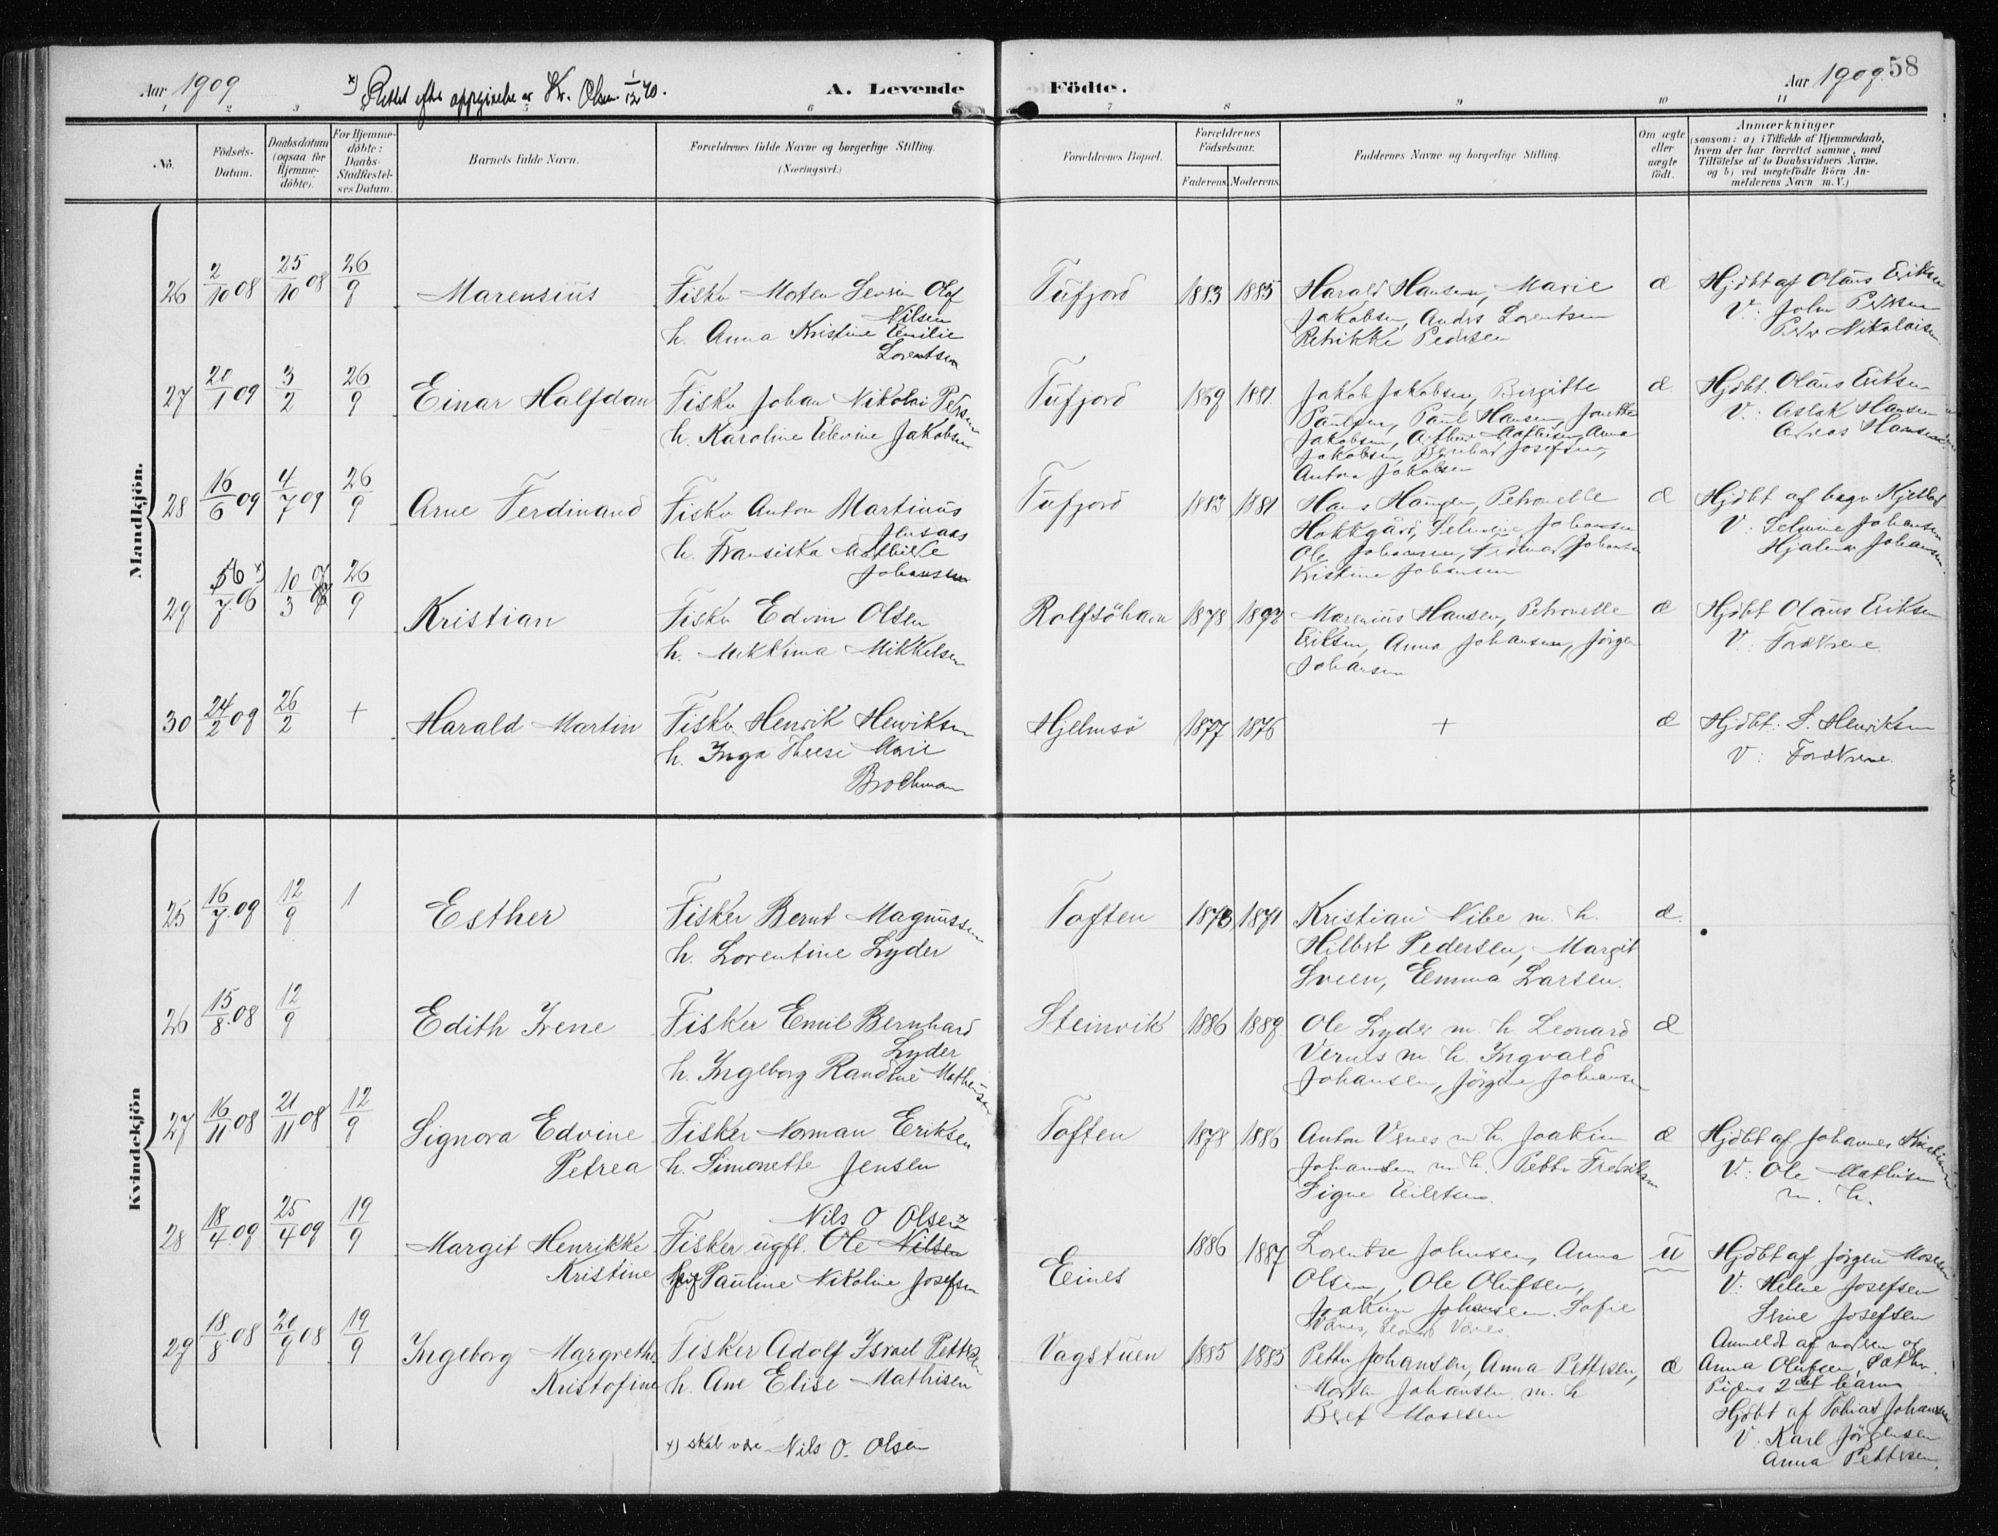 Aar 1909
x) Rettet efter opgivelse av Kr. Olsen 1/12 40.
A. Levende Födte.
Aar 1909.
58
1 2 3 6 7 8 9 10 11
No.
Födsels-Datum.
Daabsdatum (ogsaa for Hjemme-döbte).
For Hjemme-döbte: Daabs-Stadfæstel-ses Datum.
Barnets fulde Navn.
Forældrenes fulde Navne og borgerlige Stilling. (Næringsvei.)
Forældrenes Bopæl.
Forældrenes Födselsaar.
Faderens. Moderens.
Faddernes Navne og borgerlige Stilling.
Om ægte eller uægte födt.
Anmærkninger
(saasom: a) i Tilfælde af Hjemmedaab, hvem der har forrettet samme, med Tilföielse af to Daabsvidners Navne, og b) ved uægtefödte Börn An-melderens Navn m. V.)
Mandkjön.
26 2/10 08 25/10 08 26/9 Marensius
Fisker Morten Sevrin Olaf
Nilsen
h. Anna Kristine Emilie
Lorentsen
Tufjord 1883 1885
Harald Hansen, Marie
Jakobsen, Anders Lorentsen
Petrikke Pedersen
æ
Hjdbt af Olaus Eriksen
V: John Persen
Peder Nikolaisen
27 20/1 09 3/2 26/9 Einar Halfdan
Fisker Johan Nikolai Persen
h. Karoline Elevine Jakobsen
Tufjord 1859 1881
Jakob Jakobsen, Birgitte
Paulsen, Paul Hansen, Jonette
Jakobsen, Arthur Mathisen, Anna
Jakobsen, Bernhard Josefsen,
Antona Jakobsen
æ
Hjdbt. Olaus Eriksen
V.: Aslak Hansen
Andreas Hansen
28 16/6 09 4/7 09 26/9 Arne Ferdinand
Fisker Anton Martinus
Jensaas
h. Fransiska Mathilde
Johansen
Tufjord 1883 1881
Hans Hansen, Petronelle
Hokkgård, Selmine Johansen
Ole Johansen, Johansen
Kristine Johansen
æ
Hjdbt af
V. Selmine Johansen
Hjalmar Johansen.
29 56 x)/7 06 10/3 26/9 Kristian
Fisker Edvin Olsen
h. Mekkima Mikkelsen
Rolfsöhavn 1878 1892
Marenius Hansen, Petronelle
Eriksen, Anna Johansen, Jörgen
Johansen
æ
Hjdbt Olaus Eriksen
V: Foreldrene.
30 24/2 09 26/2 + Harald Martin
Fisker Henrik Henriksen
h. Inga Therese Marie
Brochman
Hjelmsö 1877 1876 +
æ
Hjdbt: S. Henriksen
V: Foreldrene.
Kvindekjön
25 16/7 09 12/9 1 Esther
Fisker Bernt Magnussen
h. Lorentine Lyder
Toften 1873 1871
Kristian Nibe m. h.
Hilbert Pedersen, Margit
Sveen, Emma Larsen.
æ.
26 15/8 08 12/9 Edith Irene
Fisker Emil Bernhard
Lyder
h. Ingeborg Randine Mathisen
Steinvik 1886 1889
Ole Lyder m. h. Leonard
Vernes m. h. Ingvald
Johansen, Jörgine Johansen
æ
27 16/11 08 21/11 08 12/9 Signora Edvine
Petrea
Fisker Norman Eriksen
h. Simonette Jensen
Toften 1878 1886
Anton Vernes m. h. Joakim
Johansen m. h. Petter Fredriksen
Signe Eilertsen.
æ
Hjdbt af Johannes Kristiansen
V: Ole Mathisen
m. h.
28 18/4 09 25/4 09 19/9 Margit Henrikke
Kristine
Nils O Olsen x
Fisker ugft. Ole Nilsen
Pige Pauline Nikoline Josefsen
Eines 1886 1887
Lorentse Johnsen, Anna
Olsen, Ole Olufsen,
Joakim Johansen. Sofie
Vernes, Leonard Vernes.
u
Hjdbt af Jörgen Mosesen
V: Helene Josefsen
Serine Josefsen
Anmeldt af moren og
Anna Olufsen,
Pigens 2det barn
29 18/8 08 20/9 08 19/9 Ingeborg Margrethe
Kristofine
Fisker Adolf Israel Pettersen
h. Ane Elise Mathisen
Vagstuen 1885 1885
Petter Johansen, Anna Pettersen,
Morten Johansen m. h
Beret Mosesen
æ
Hjdbt af Tobias Johansen
V. Karl Jörgensen
Anna Pettersen.
x) skal være Nils O. Olsen